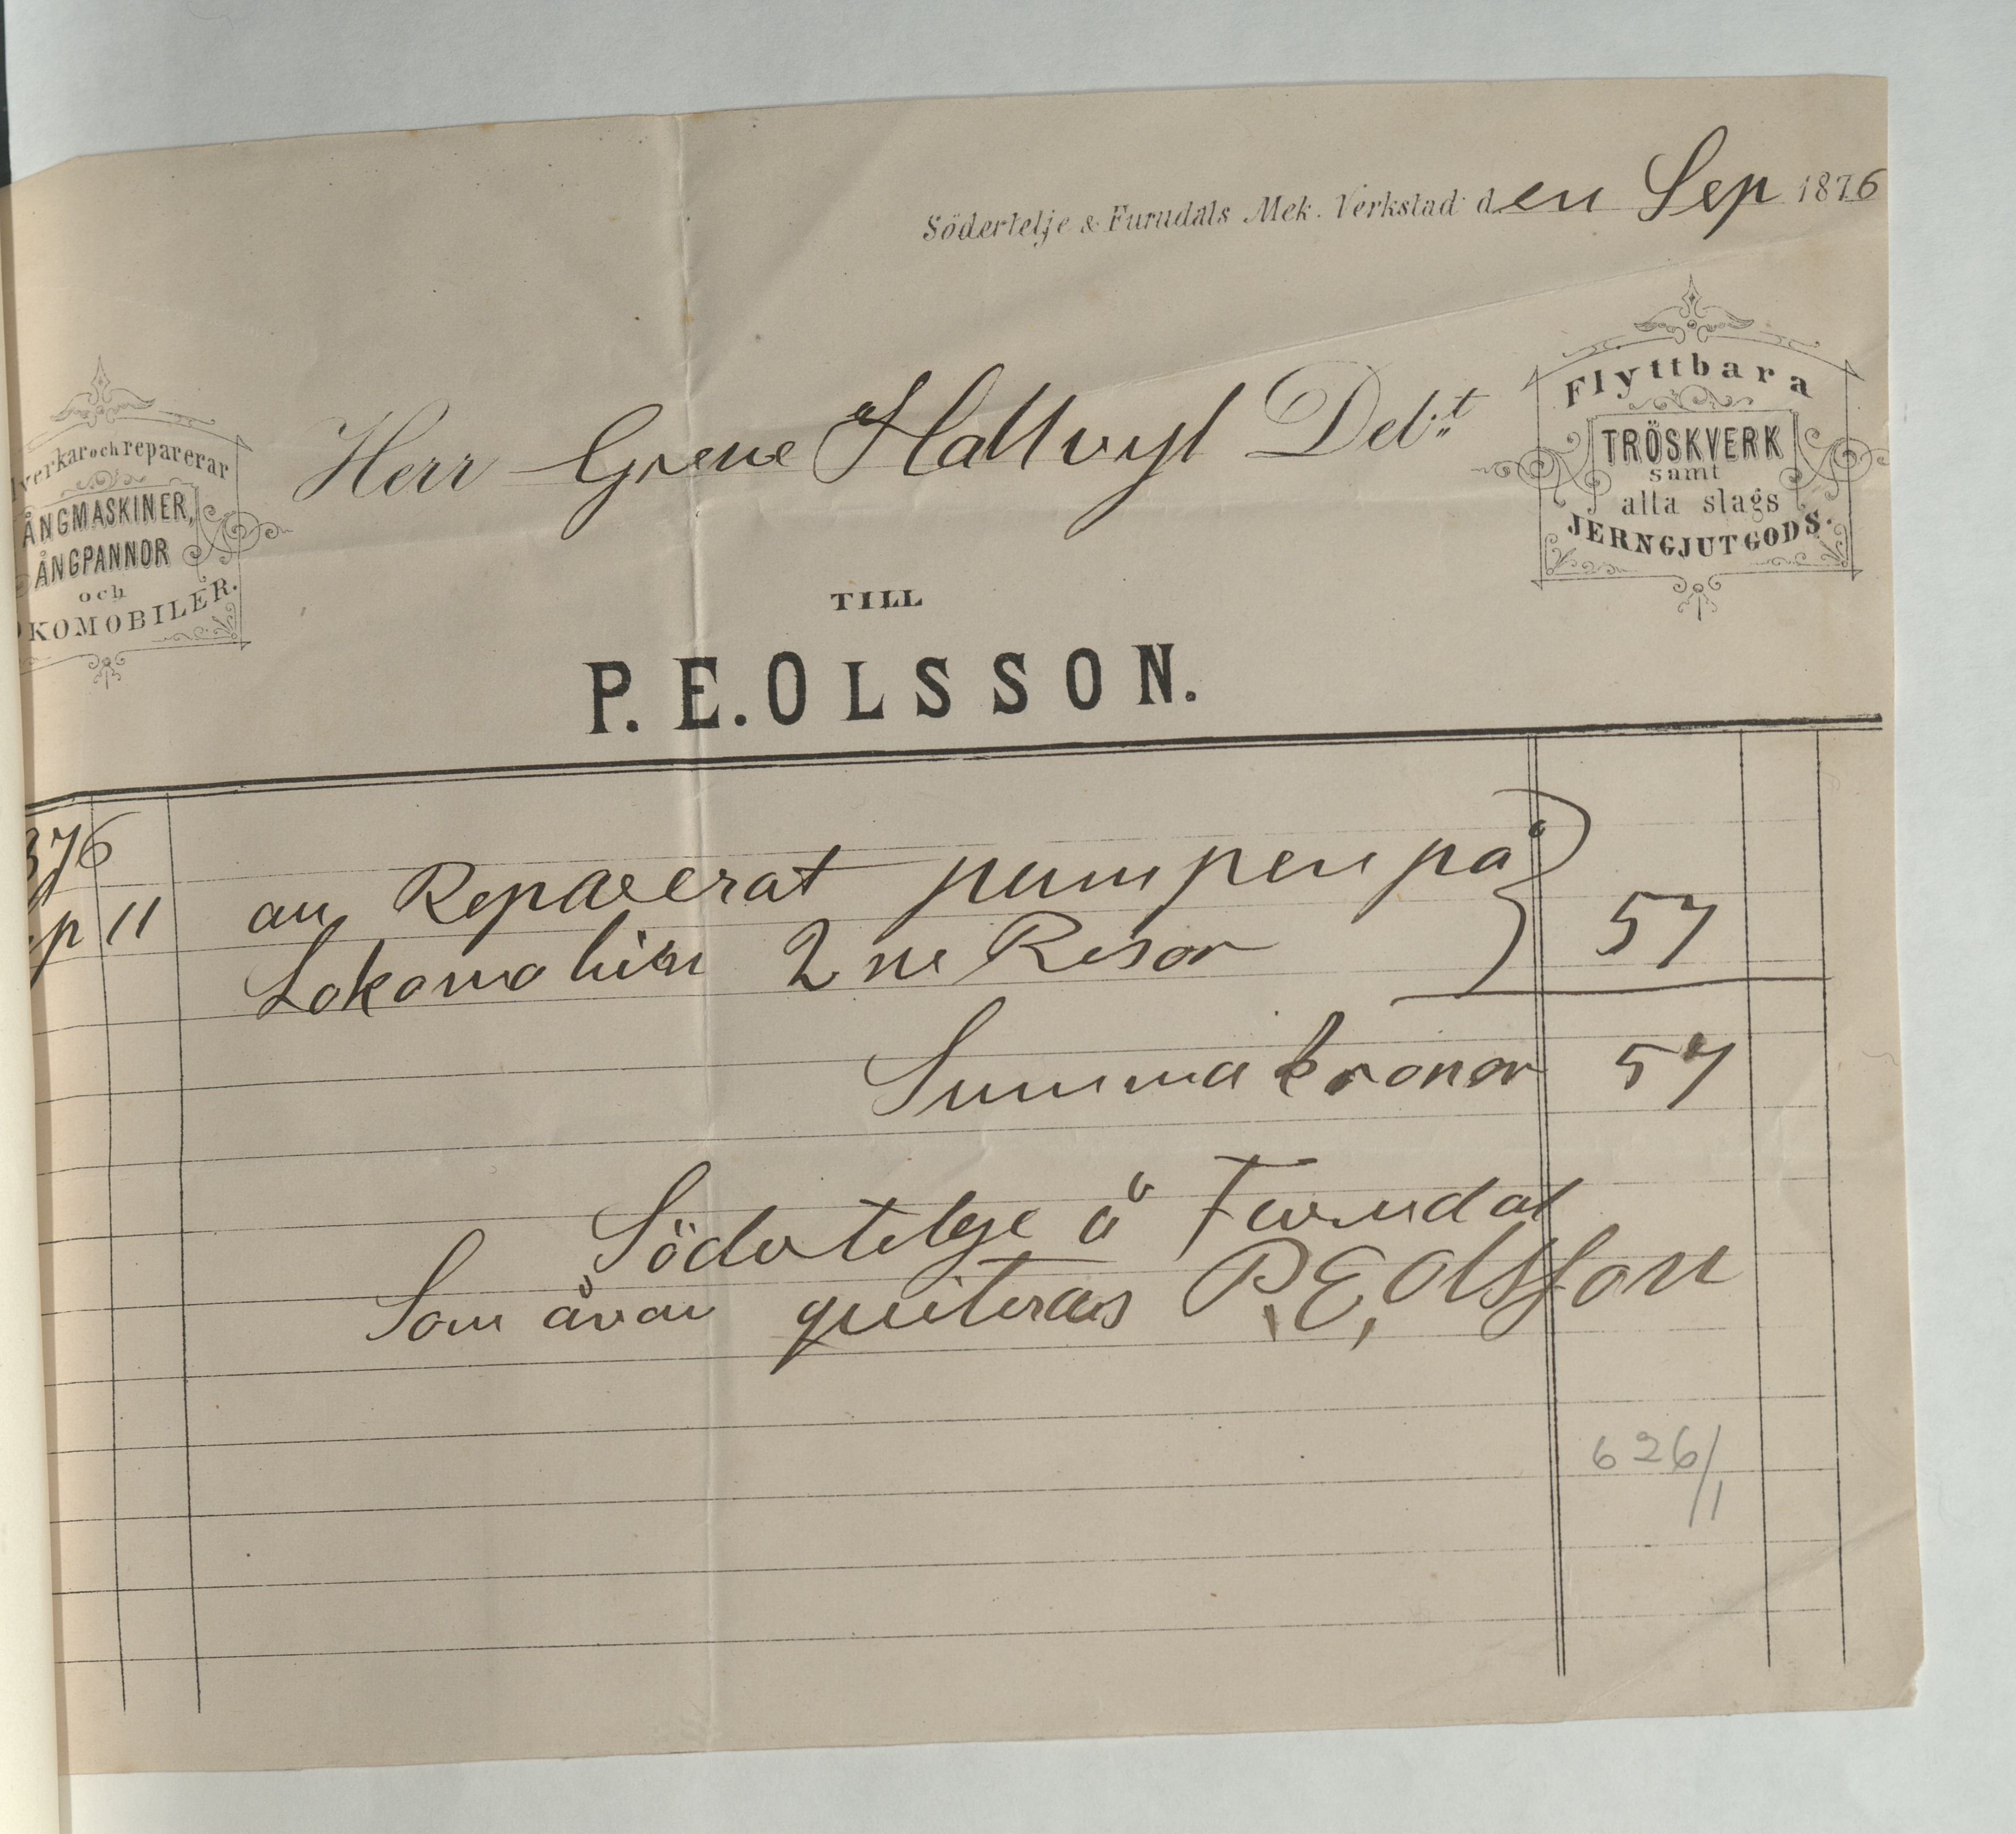 Södertelje & Furudals Mek. Verkstad den Sep 1876
verkar och reparerar
ÅNGMASKINER,
ÅNGPANNOR
och
KOMOBILER.
Herr Greve Hallvyl Deb:t
Flyttbara
TRÖSKVERK
samt
alla slags
JERNGJUTGODS.
TILL
P. E. OLSSON.
376
ep 11 an Reparerat pumpen på
Lokomobien 2 ne Resor 57
Summa kronor 57
Södertelge å Furudal
Som åvan quiteras P. E, Olsson
626/1